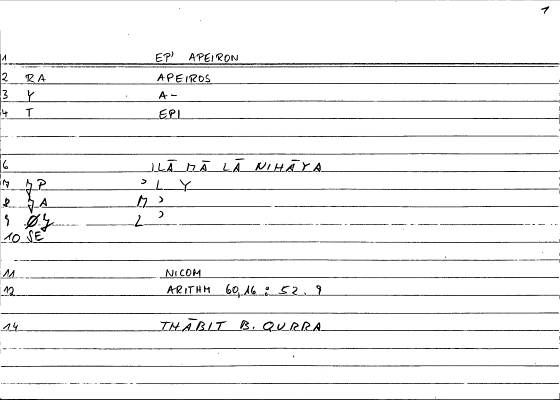 1
1 EP' APEIRON
2 RA APEIROS
3 Y A-
4 T EPI
6 ILĀ MĀ LĀ NIHĀYA
7 P ʾL Y
8 A M ʾ
9 L ʾ
10 SE
11 NICOM
12 ARITHM 60,16 : 52.9
14 THĀBIT B. QURRA